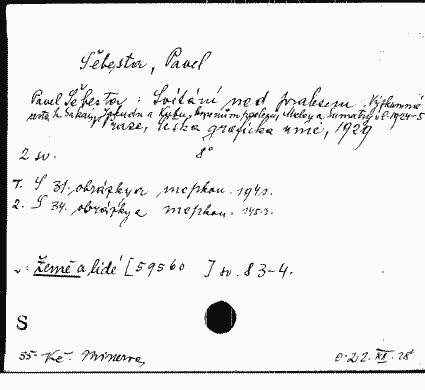 Šebesta, Pavel
Pavel Šebesta : Svítání nad pralesem. Výzkumné
cesta k Sakaiy, Jakudn a Kubu, pralesy Malay a Sumatry v l. 1924-5
Praze, Česká grafická unie, 1929
2 sv. 8°
1. S 31. obrázky a mapkou. 194 s.
2. S 34. obrázky a mapkou. 145 s.
v: Země a lidé [59560 ] sv. 83-4.
S
55.- Kč. Minerva,